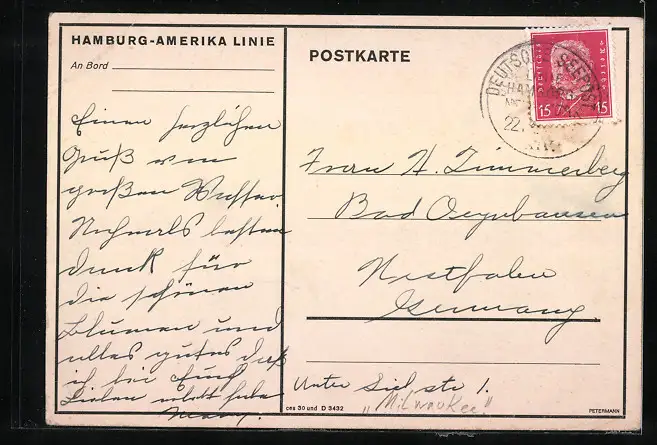 HAMBURG-AMERIKA LINIE
An Bord
POSTKARTE
DEUTSCHE SEEPOST
HAMBURG
22.
Deutsches Reich
15 15
Einen herzlichen
Gruß vom
großen Wasser.
Nochmals besten
dank für
die schönen
Blumen und
alles gutes daß
ich bei Euch
Lieben gehabt habe
Frau H. Zimmerberg
Bad Oeynhausen
Westfalen
Germany.
Unter Siel str 1.
„Milwaukee"
ces 30 und D 3432
PETERMANN